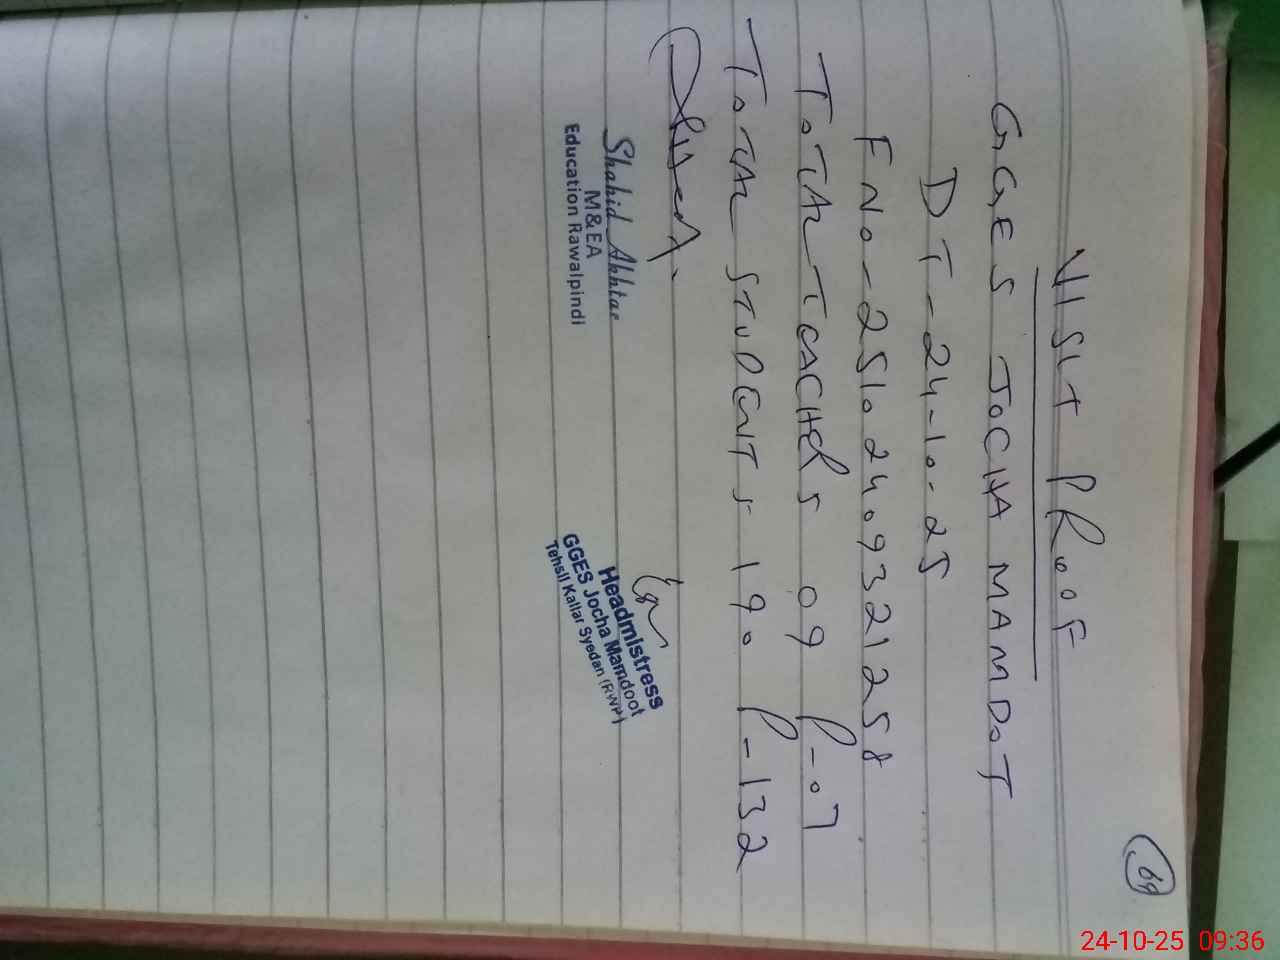 69
VISIT PROOF
GGES JOCHA MAMDOT
DT-24-10-25
FNo-25102409321258
TOTAL TEACHERS 09 P-07
TOTAL STUDENTS 190 P-132
Shahid Akhtar
M&EA
Education Rawalpindi
Headmistress
GGES Jocha Mamdoot
Tehsil Kallar Syedan (RWP)
24-10-25 09:36